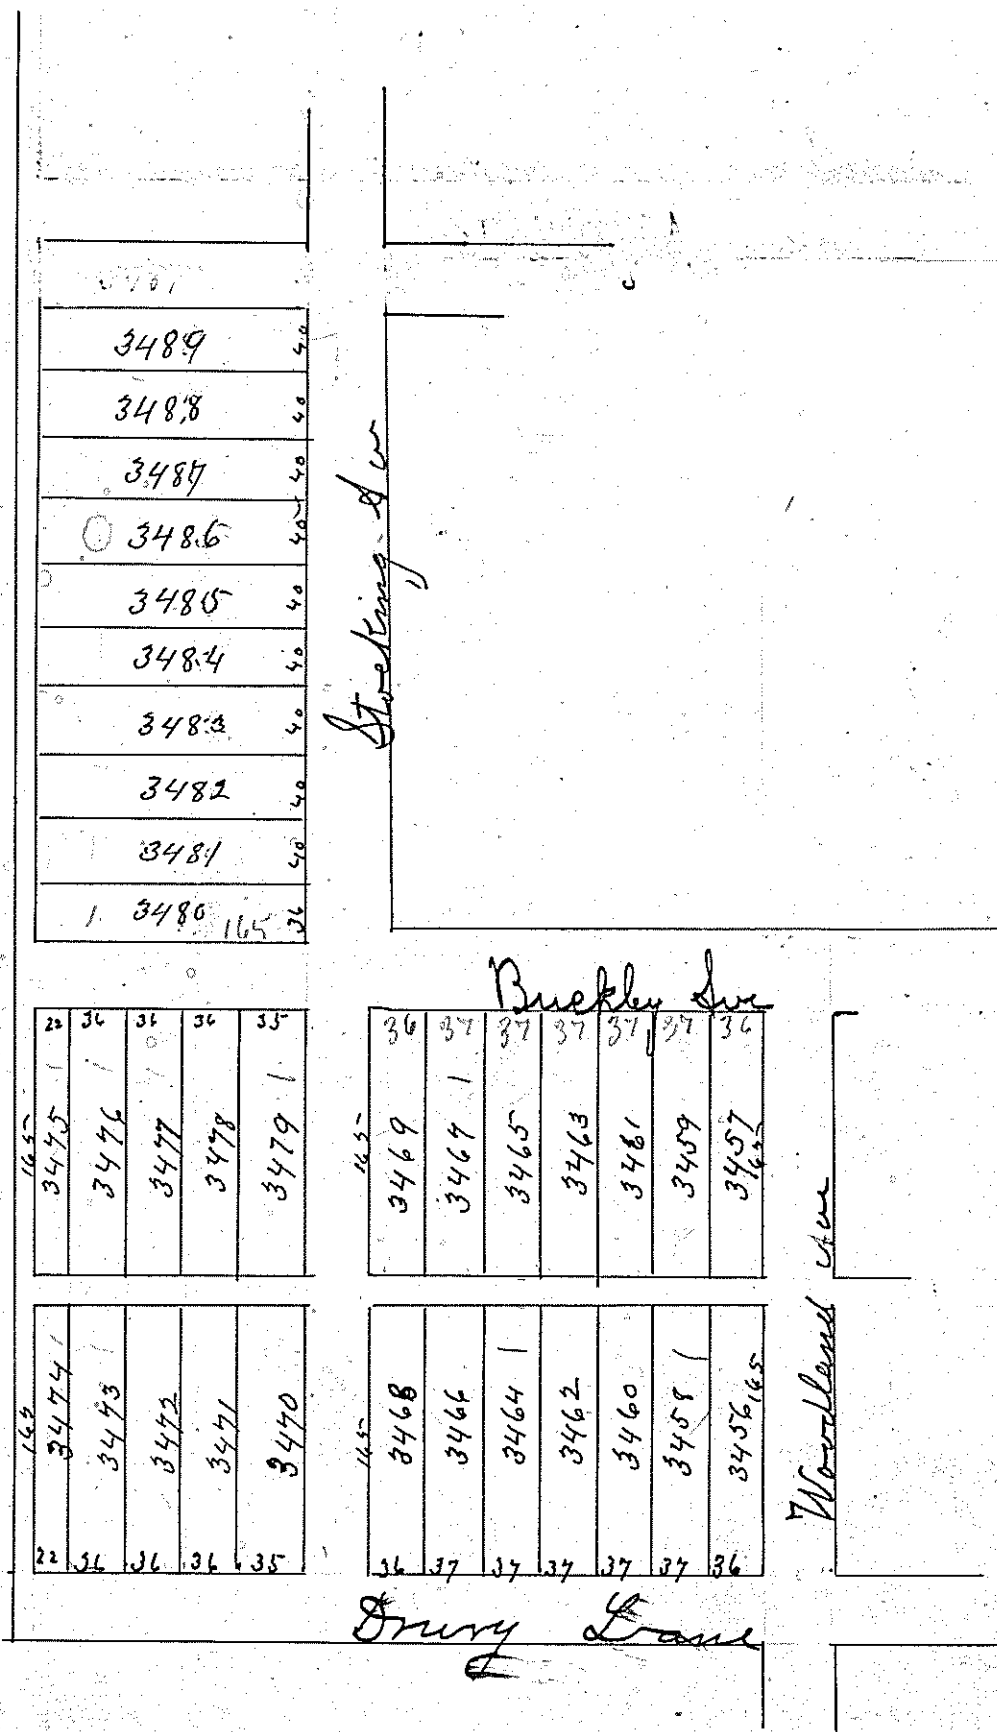 3489 40
3488 40
3487 40
3486 40
3485 40
3484 40
3483 40
3482 40
3481 40
1 3480 165 36
Stocking Av
Buckley Ave
22 36 36 36 35
165 3475 1 3476 1 3477 1 3478 3479 1
36 37 37 37 37 37 36
165 3469 3467 1 3465 3463 3461 3459 3457 165
Woodland Ave
165 3474 1 3473 1 3472 3471 3470
22 36 36 36 35
165 3468 3466 3464 1 3462 3460 3458 1 3456 165
36 37 37 37 37 37 36
Drury Lane